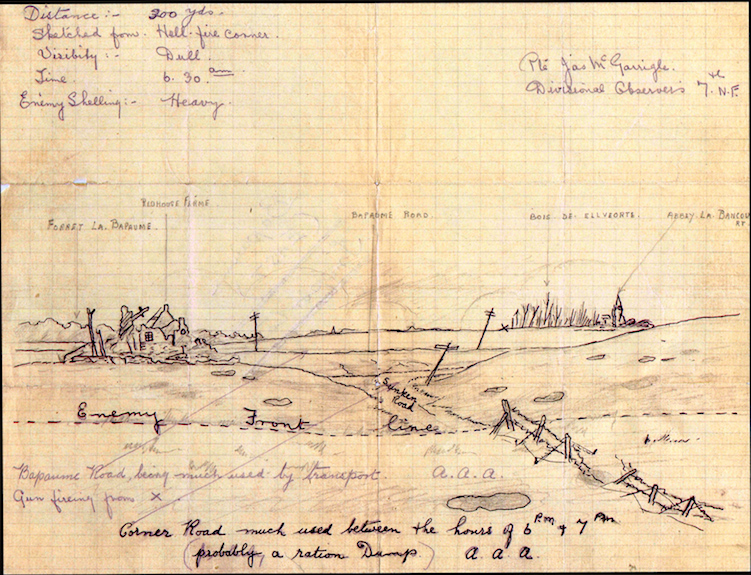 Distance :- 300 yds.
Sketched from. Hell-fire Corner.
Visibity :- Dull.
Time 6.30. am
Enemy Shelling :- Heavy.
Pte Jas McGarrigle.
Divisional Observers 7th N.F.
REDHOUSE FERME
FORRET LA. BAPAUME.
BAPAUME ROAD.
BOIS DE. ELLVEORTS.
ABBEY LA. BANCOU
RT
Sunken
Road
Enemy Front Lines
Bapaume Road, being much used by transport. A.A.A.
Gun fireing from X.
Corner Road much used between the hours of 6 P.m & 7 Pm
(probably, a ration Dump.) A.A.A.